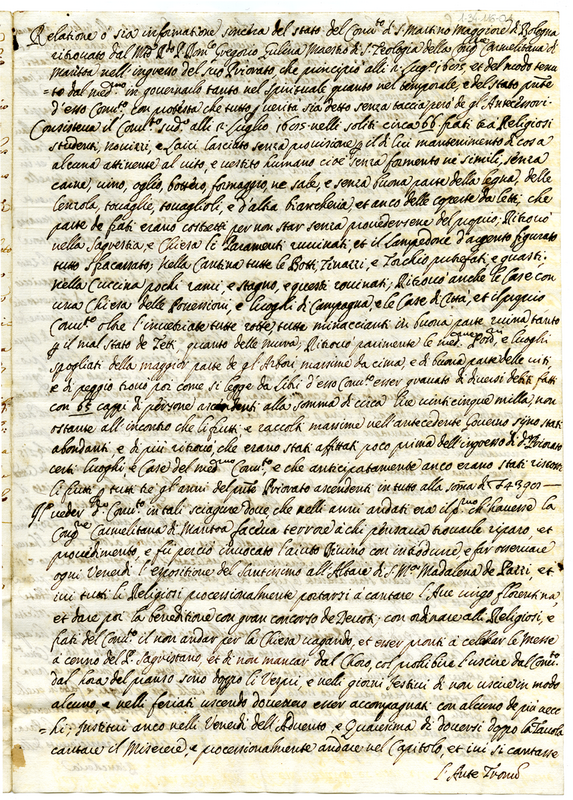 Relatione o sia informatione sincera del stato del Conu.to di S. Martino Maggiore di Bologna
ritrouato dal M.to R.do P. Dom.co Gregorio Maestro di S. Teologia della Cong.ne Carmelitana di
Mantoa nell'ingresso del suo Priorato, che principiò alli 2. Lug.o 1695. et del modo tenu
=to dal med.mo in gouernarlo tanto nel Spirituale quanto nel temporale, e del stato pnte
d'esso Conu.to. Con protesta che tutto p uerità sia detto senza taccia però de gl'Antecessori
Consisteua il Conu.to sud.o alli 2. Luglio 1695 nelli soliti circa 66 frati tra Religiosi
studenti, nouizzi, e Laici lasciato senza prouisione p il di lui mantenimento di cosa
alcuna attinente al uito, e uestito humano cioè senza formento ne simili, senza
carne, uino, oglio, bottiro, formaggio, ne sale, e senza buona parte della legna, delle
lenzola, touaglie, touaglioli, e d'altra biancheria, et anco delle coperte da letti, che
parte de frati erano costretti per non star senza prouedersene del proprio; Ritrouò
nella Sagrestia, e Chiesa li Paramenti ruuinati, et il Lampedone d'argento figurato
tutto sfracassato; nella Cantina tutte le Botti, Tinazzi, e Torchio putrefati, e guasti:
nella Cuccina pochi rami, e stagno, e questi rouinati; Ritrouò anche le Case con
una Chiesa delle Possessioni, e luoghi di Campagna, e le Case di Città, et il proprio
Conu.to oltre l'inuetriate tutte rotte, tutte minaccianti in buona parte ruina tanto
p il mal stato de Tetti, quanto delle mura; Ritrouò parimente le med.me Poss.ni, e luoghi
spogliati della maggior parte de gl'Arbori massime da cima, e di buona parte delle uiti,
e di peggio trouò poi come si legge da libri d'esso Conu.to esser grauato di diuersi debiti fatti
con 65 cappi di persone ascendenti alla somma di circa lire uinticinque milla, non
ostante all'incontro che li frutti e raccolti massime nell'antecedente Gouerno sijno stati
abondanti, e di più ritrouò, che erano stati affittati poco prima dell'ingresso di d.o Priorato
certi luoghi e Case del med.mo Conu.to, e che anticipatamente anco erano stati riscossi
li frutti p tutti tre gli anni del pnte Priorato ascendenti in tutto alla soma di £4390:—
Il ueder d.o Conu.to in tali sciagure doue che nelli anni andati era il p.mo ch'hauesse la
Cong.ne Carmelitana di Mantoa faceua terrore à chi pensaua trouarle riparo, et
prouedimento, e fu perciò inuocato l'aiuto Diuino con introdurre, e far osseruare
ogni Venerdì l'espositione del Santissimo all'Altare di S. M.a Madalena de Pazzi, et
iui tutti li Religiosi processionalmente portarsi à cantare l'Aue uirgo florentina,
et dare poi la beneditione con gran concorso de Deuoti; con ordinare alli Religiosi, e
frati del Conu.to il non andar per la Chiesa uagando, et esser pronti à celebrar le Messe
à cenno del P. Sagristano, et di non mancar dal Choro, col prohibire l'uscire dal Conu.to
dal hora del pranso sino doppo li Vespri, e nelli giorni festiui di non uscire in modo
alcuno, e nelli feriati uscendo douessero esser accompagnati con alcuno de più uec
=chi; Institui anco nelli Venerdì dell'Aduento, e Quaresima di douersi doppo la Tauola
cantare il Miserere, e processionalmente andare nel Capitolo, et iui si cantasse